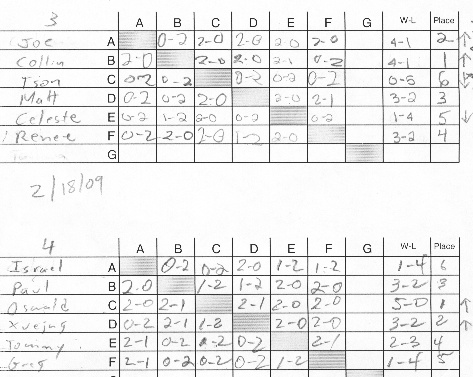 3 A B C D E F G W-L Place
Joe A 0-2 2-0 2-0 2-0 2-0 4-1 2
Collin B 2-0 2-0 2-0 2-1 0-2 4-1 1
C 0-2 0-2 0-2 0-2 0-2 0-5 6
Matt D 0-2 0-2 2-0 2-0 2-1 3-2 3
Celeste E 0-2 1-2 2-0 0-2 0-2 1-4 5
Renee F 0-2 2-0 2-0 1-2 2-0 3-2 4
G
2/18/09
4 A B C D E F G W-L Place
Israel A 0-2 0-2 2-0 1-2 1-2 1-4 6
Paul B 2-0 1-2 1-2 2-0 2-0 3-2 3
Oswald C 2-0 2-1 2-1 2-0 2-0 5-0 1
D 0-2 2-1 1-2 2-0 2-0 3-2 2
Tommy E 2-1 0-2 0-2 2-1 2-3 4
Greg F 2-1 0-2 0-2 0-2 1-2 1-4 5